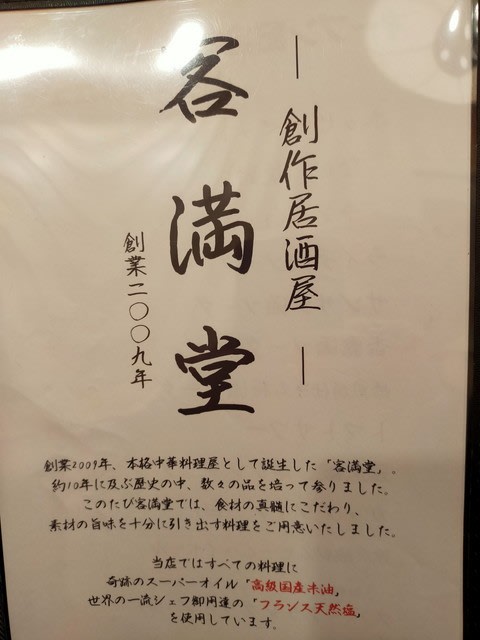 ― 創作居酒屋 ―
客満堂
創業二〇〇九年
創業2009年、本格中華料理屋として誕生した「客満堂」。
約10年に及ぶ歴史の中、数々の品を培って参りました。
このたび客満堂では、食材の真髄にこだわり、
素材の旨味を十分に引き出す料理をご用意いたしました。
当店ではすべての料理に
奇跡のスーパーオイル「高級国産米油」
世界の一流シェフ御用達の「フランス天然塩」
を使用しています。